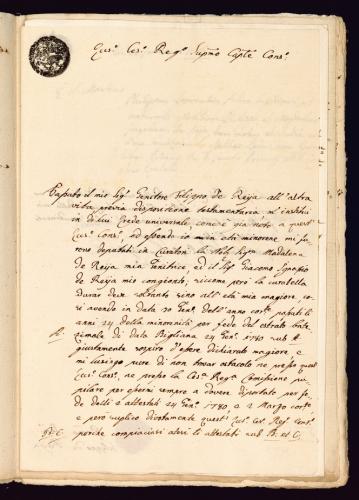 Ecc.° Ces.° Reg.° Supmo Capte Cons.°
Passato il mio Sig.r Genitore Filippo De Reija all'altra
vita previa disposizione testamentaria al instituì
in di lui Erede universale, come è già noto a quest'
Ecc.° Cons.°, ed essendo io in età minorene mi fu-
rono deputati in Curatori la Nob. Sig.ra Madalena
de Reija mia Genitrice, ed il Sig. Giacomo
de Reija mio congionto; siccome però la curatella
durar deve soltanto sino all'età mia magiore, co-
sì avendo in data 20 Gen.° dell'anno cor.te passati li
anni 24 della minorenità per fede del estratto bate-
A. simale di data Bigliana 24 Gen.° 1780 sub A
giustamente sospiro d'essere dichiarato magiore, e
mi lusingo pure di non trovar ostacolo ne presso quest'
Ecc.° Cons.°, ne presso la Ces.a Reg.a Comissione pu-
pilare per essermi sempre a dovere diportato per fe-
de delli 2 attestati 24 Gen.° 1780, e 2 Marzo cor.te
e però suplico divotamente quest' Ecc.° Ces.° Reg.° Cons.°
B. C. perche compiaciasi atesi li attestati sub B. et C.